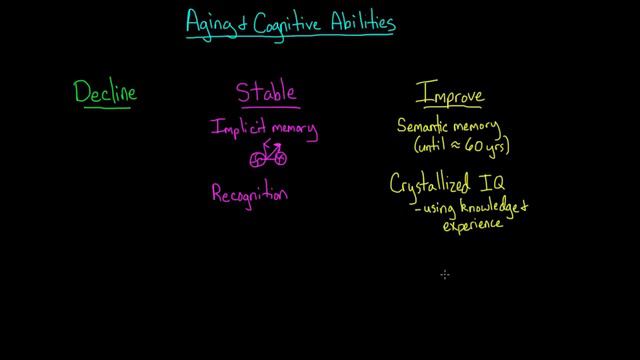 Aging & Cognitive Abilities
Decline
Stable
Implicit memory
Recognition
Improve
Semantic memory
(until ≈ 60 yrs)
Crystallized IQ
- using knowledge &
experience